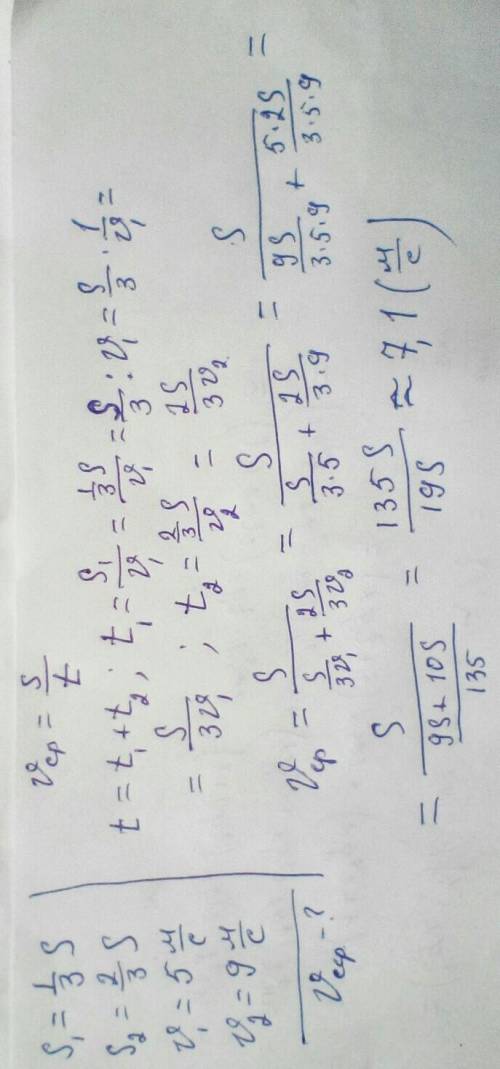 S₁ = 1/3 S
S₂ = 2/3 S
v₁ = 5 м/с
v₂ = 9 м/с
vср - ?
vср = S/t
t = t₁ + t₂; t₁ = S₁/v₁ = (1/3 S)/v₁ = S/3 : v₁ = S/3 · 1/v₁ =
= S/(3v₁); t₂ = (2/3 S)/v₂ = 2S/(3v₂)
vср = S/(S/(3v₁) + 2S/(3v₂)) = S/(S/(3·5) + 2S/(3·9)) = S/(9S/(3·5·9) + 5·2S/(3·5·9)) =
= S/((9S + 10S)/135) = 135S/19S ≈ 7,1 (м/с)